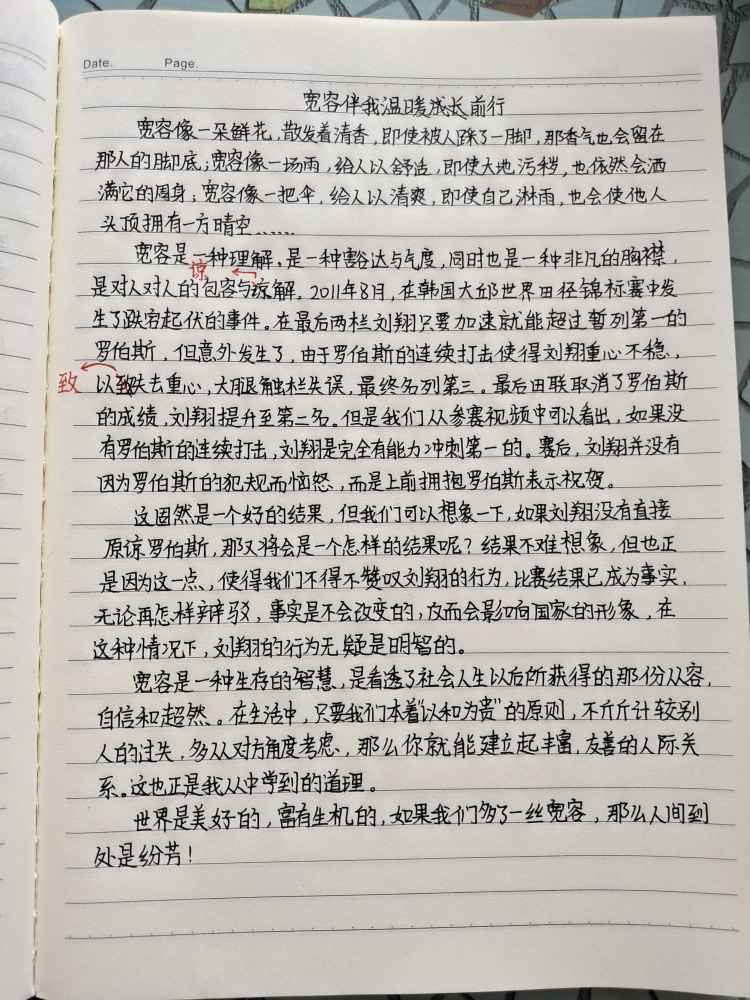 Date. Page.
宽容伴我温暖成长前行
宽容像一朵鲜花，散发着清香，即使被人踩了一脚，那香气也会留在
那人的脚底；宽容像一场雨，给人以舒适，即使大地污秽，也依然会洒
满它的周身；宽容像一把伞，给人以清爽，即使自己淋雨，也会使他人
头顶拥有一方晴空……
宽容是一种理解，是一种豁达与气度，同时也是一种非凡的胸襟，
谅
是对人对人的包容与谅解。2011年8月，在韩国大邱世界田径锦标赛中发
生了跌宕起伏的事件。在最后两栏刘翔只要加速就能超过暂列第一的
罗伯斯，但意外发生了，由于罗伯斯的连续打击使得刘翔重心不稳，
致 以致失去重心，大腿触栏失误，最终名列第三。最后田联取消了罗伯斯
的成绩，刘翔提升至第二名。但是我们从参赛视频中可以看出，如果没
有罗伯斯的连续打击，刘翔是完全有能力冲刺第一的。赛后，刘翔并没有
因为罗伯斯的犯规而恼怒，而是上前拥抱罗伯斯表示祝贺。
这固然是一个好的结果，但我们可以想象一下，如果刘翔没有直接
原谅罗伯斯，那又将会是一个怎样的结果呢？结果不难想象，但也正
是因为这一点，使得我们不得不赞叹刘翔的行为，比赛结果已成为事实，
无论再怎样辩驳，事实是不会改变的，反而会影响国家的形象，在
这种情况下，刘翔的行为无疑是明智的。
宽容是一种生存的智慧，是看透了社会人生以后所获得的那份从容，
自信和超然。在生活中，只要我们本着“以和为贵”的原则，不斤斤计较别
人的过失，多从对方角度考虑，那么你就能建立起丰富，友善的人际关
系。这也正是我从中学到的道理。
世界是美好的，富有生机的，如果我们多了一丝宽容，那么人间到
处是纷芳！